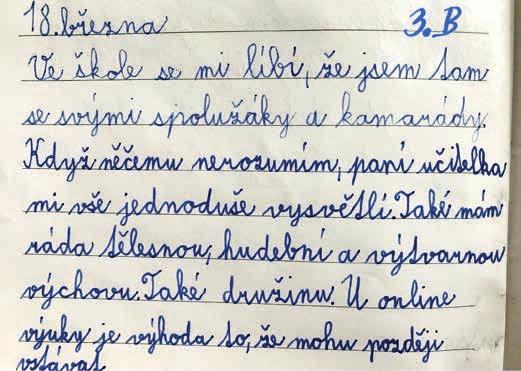 18. března 3. B
Ve škole se mi líbí, že jsem tam
se svými spolužáky a kamarády.
Když něčemu nerozumím, paní učitelka
mi vše jednoduše vysvětlí. Také mám
ráda tělesnou, hudební a výtvarnou
výchovu. Také družinu. U online
výuky je výhoda to, že mohu později
vstávat